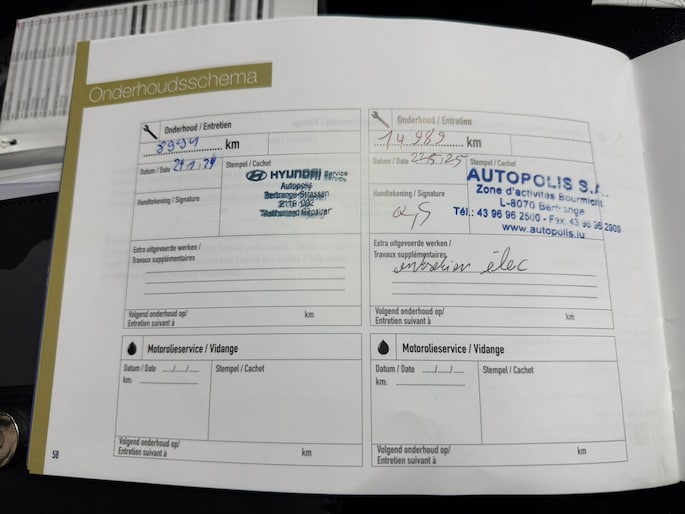 Onderhoudsschema
Onderhoud / Entretien
8994 km
Datum / Date
Stempel / Cachet
HYUNDAI Service
Autopolis
Bertrange-Strassen
Authorized Repairer
Handtekening / Signature
Extra uitgevoerde werken /
Travaux supplémentaires
Volgend onderhoud op/
Entretien suivant à km
Onderhoud / Entretien
14 989 km
Datum / Date 27.5.25
Stempel / Cachet
AUTOPOLIS S.A.
Zone d'activités Bourmicht
L-8070 Bertrange
Tél.: 43 96 96 2500 - Fax. 43 96 96 2909
www.autopolis.lu
Handtekening / Signature
Extra uitgevoerde werken /
Travaux supplémentaires
entretien élec
Volgend onderhoud op/
Entretien suivant à km
Motorolieservice / Vidange
Datum / Date __/__/__
km:
Stempel / Cachet
Volgend onderhoud op/
Entretien suivant à km
Motorolieservice / Vidange
Datum / Date __/__/__
km:
Stempel / Cachet
Volgend onderhoud op/
Entretien suivant à km
58